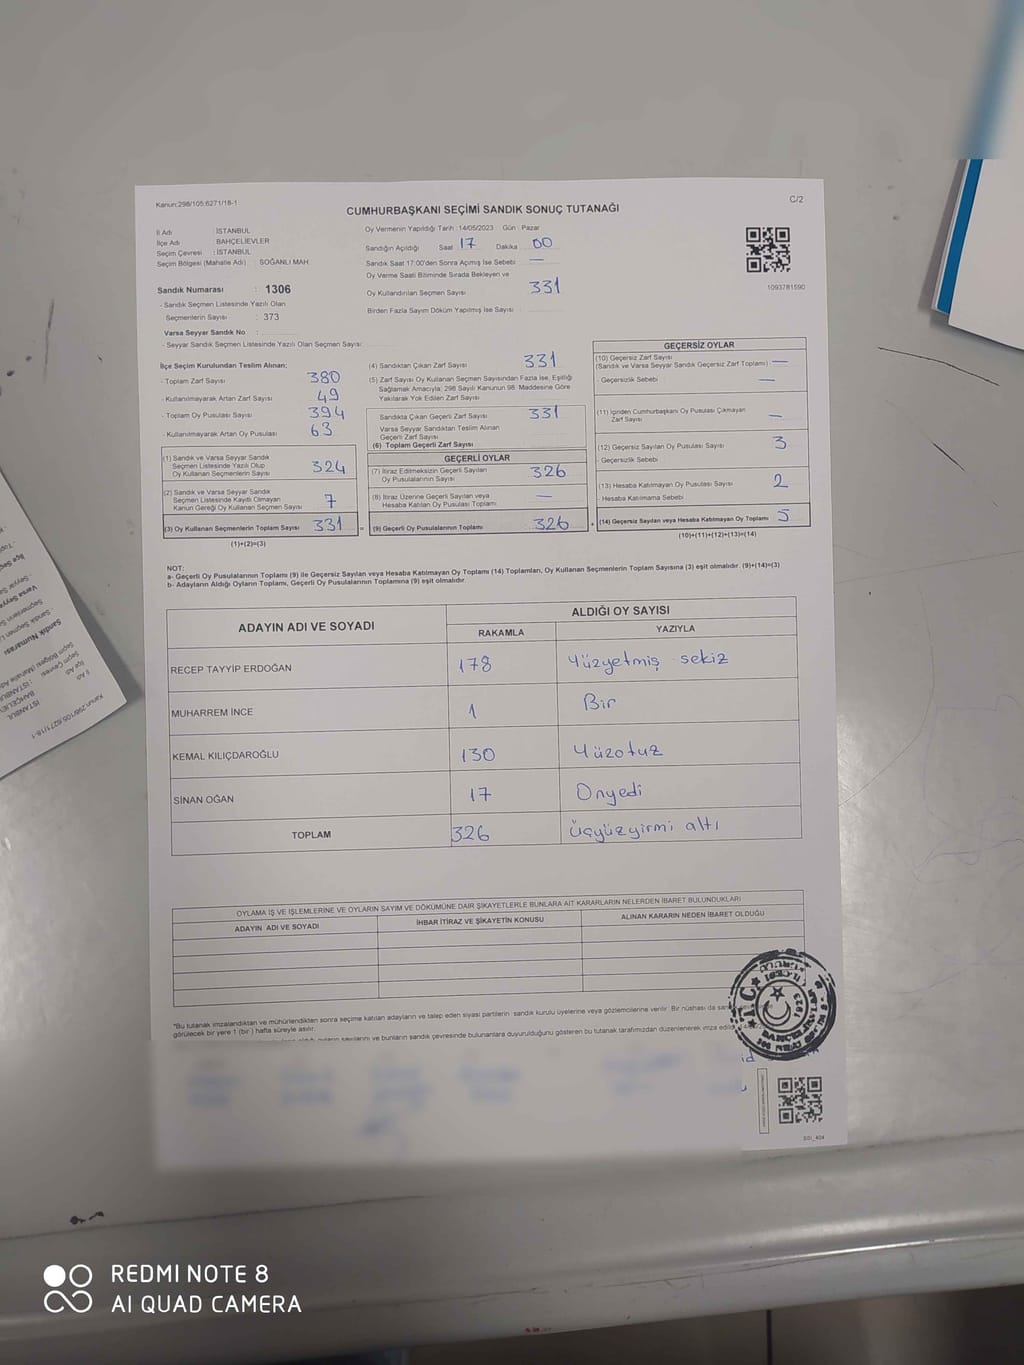 Kanun:298/105;6271/18-1
C/2
CUMHURBAŞKANI SEÇİMİ SANDIK SONUÇ TUTANAĞI
İl Adı : İSTANBUL
İlçe Adı : BAHÇELİEVLER
Seçim Çevresi : İSTANBUL
Seçim Bölgesi (Mahalle Adı) : SOĞANLI MAH.
Sandık Numarası : 1306
- Sandık Seçmen Listesinde Yazılı Olan
Seçmenlerin Sayısı : 373
Varsa Seyyar Sandık No :
- Seyyar Sandık Seçmen Listesinde Yazılı Olan Seçmen Sayısı:
Oy Vermenin Yapıldığı Tarih : 14/05/2023 Gün : Pazar
Sandığın Açıldığı Saat 17 Dakika 00
Sandık Saat 17:00'den Sonra Açılmış İse Sebebi : —
Oy Verme Saati Bitiminde Sırada Bekleyen ve
Oy Kullandırılan Seçmen Sayısı 331
Birden Fazla Sayım Döküm Yapılmış İse Sayısı :
1093781590
İlçe Seçim Kurulundan Teslim Alınan;
- Toplam Zarf Sayısı 380
- Kullanılmayarak Artan Zarf Sayısı 49
- Toplam Oy Pusulası Sayısı 394
- Kullanılmayarak Artan Oy Pusulası 63
(1) Sandık ve Varsa Seyyar Sandık
Seçmen Listesinde Yazılı Olup
Oy Kullanan Seçmenlerin Sayısı 324
(2) Sandık ve Varsa Seyyar Sandık
Seçmen Listesinde Kayıtlı Olmayan
Kanun Gereği Oy Kullanan Seçmen Sayısı 7
(3) Oy Kullanan Seçmenlerin Toplam Sayısı 331 =
(1)+(2)=(3)
(4) Sandıktan Çıkan Zarf Sayısı 331
(5) Zarf Sayısı Oy Kullanan Seçmen Sayısından Fazla İse, Eşitliği
Sağlamak Amacıyla; 298 Sayılı Kanunun 98. Maddesine Göre
Yakılarak Yok Edilen Zarf Sayısı
Sandıkta Çıkan Geçerli Zarf Sayısı 331
Varsa Seyyar Sandıktan Teslim Alınan
Geçerli Zarf Sayısı
(6) Toplam Geçerli Zarf Sayısı
GEÇERLİ OYLAR
(7) İtiraz Edilmeksizin Geçerli Sayılan
Oy Pusulalarının Sayısı 326
(8) İtiraz Üzerine Geçerli Sayılan veya
Hesaba Katılan Oy Pusulası Toplamı —
(9) Geçerli Oy Pusulalarının Toplamı 326 +
GEÇERSİZ OYLAR
(10) Geçersiz Zarf Sayısı
(Sandık ve Varsa Seyyar Sandık Geçersiz Zarf Toplamı) —
- Geçersizlik Sebebi —
(11) İçinden Cumhurbaşkanı Oy Pusulası Çıkmayan
Zarf Sayısı —
(12) Geçersiz Sayılan Oy Pusulası Sayısı 3
- Geçersizlik Sebebi
(13) Hesaba Katılmayan Oy Pusulası Sayısı 2
- Hesaba Katılmama Sebebi
(14) Geçersiz Sayılan veya Hesaba Katılmayan Oy Toplamı 5
(10)+(11)+(12)+(13)=(14)
NOT:
a- Geçerli Oy Pusulalarının Toplamı (9) ile Geçersiz Sayılan veya Hesaba Katılmayan Oy Toplamı (14) Toplamları, Oy Kullanan Seçmenlerin Toplam Sayısına (3) eşit olmalıdır. (9)+(14)=(3)
b- Adayların Aldığı Oyların Toplamı, Geçerli Oy Pusulalarının Toplamına (9) eşit olmalıdır.
ADAYIN ADI VE SOYADI ALDIĞI OY SAYISI
RAKAMLA YAZIYLA
RECEP TAYYİP ERDOĞAN 178 Yüzyetmiş sekiz
MUHARREM İNCE 1 Bir
KEMAL KILIÇDAROĞLU 130 Yüzotuz
SİNAN OĞAN 17 Onyedi
TOPLAM 326 Üçyüzyirmi altı
OYLAMA İŞ VE İŞLEMLERİNE VE OYLARIN SAYIM VE DÖKÜMÜNE DAİR ŞİKAYETLERLE BUNLARA AİT KARARLARIN NELERDEN İBARET BULUNDUKLARI
ADAYIN ADI VE SOYADI İHBAR İTİRAZ VE ŞİKAYETİN KONUSU ALINAN KARARIN NEDEN İBARET OLDUĞU
*Bu tutanak imzalandıktan ve mühürlendikten sonra seçime katılan adayların ve talep eden siyasi partilerin sandık kurulu üyelerine veya gözlemcilerine verilir. Bir nüshası da
görülecek bir yere 1 (bir ) hafta süreyle asılır.
oyların sayılarını ve bunların sandık çevresinde bulunanlara duyurulduğunu gösteren bu tutanak tarafımızdan düzenlenerek imza
T.C.
1923
SGI_404
Kanun:298/105;6271/18-1
İl Adı : İSTANBUL
İlçe Adı
Seçim Çevresi
Sandık Numarası
REDMI NOTE 8
AI QUAD CAMERA